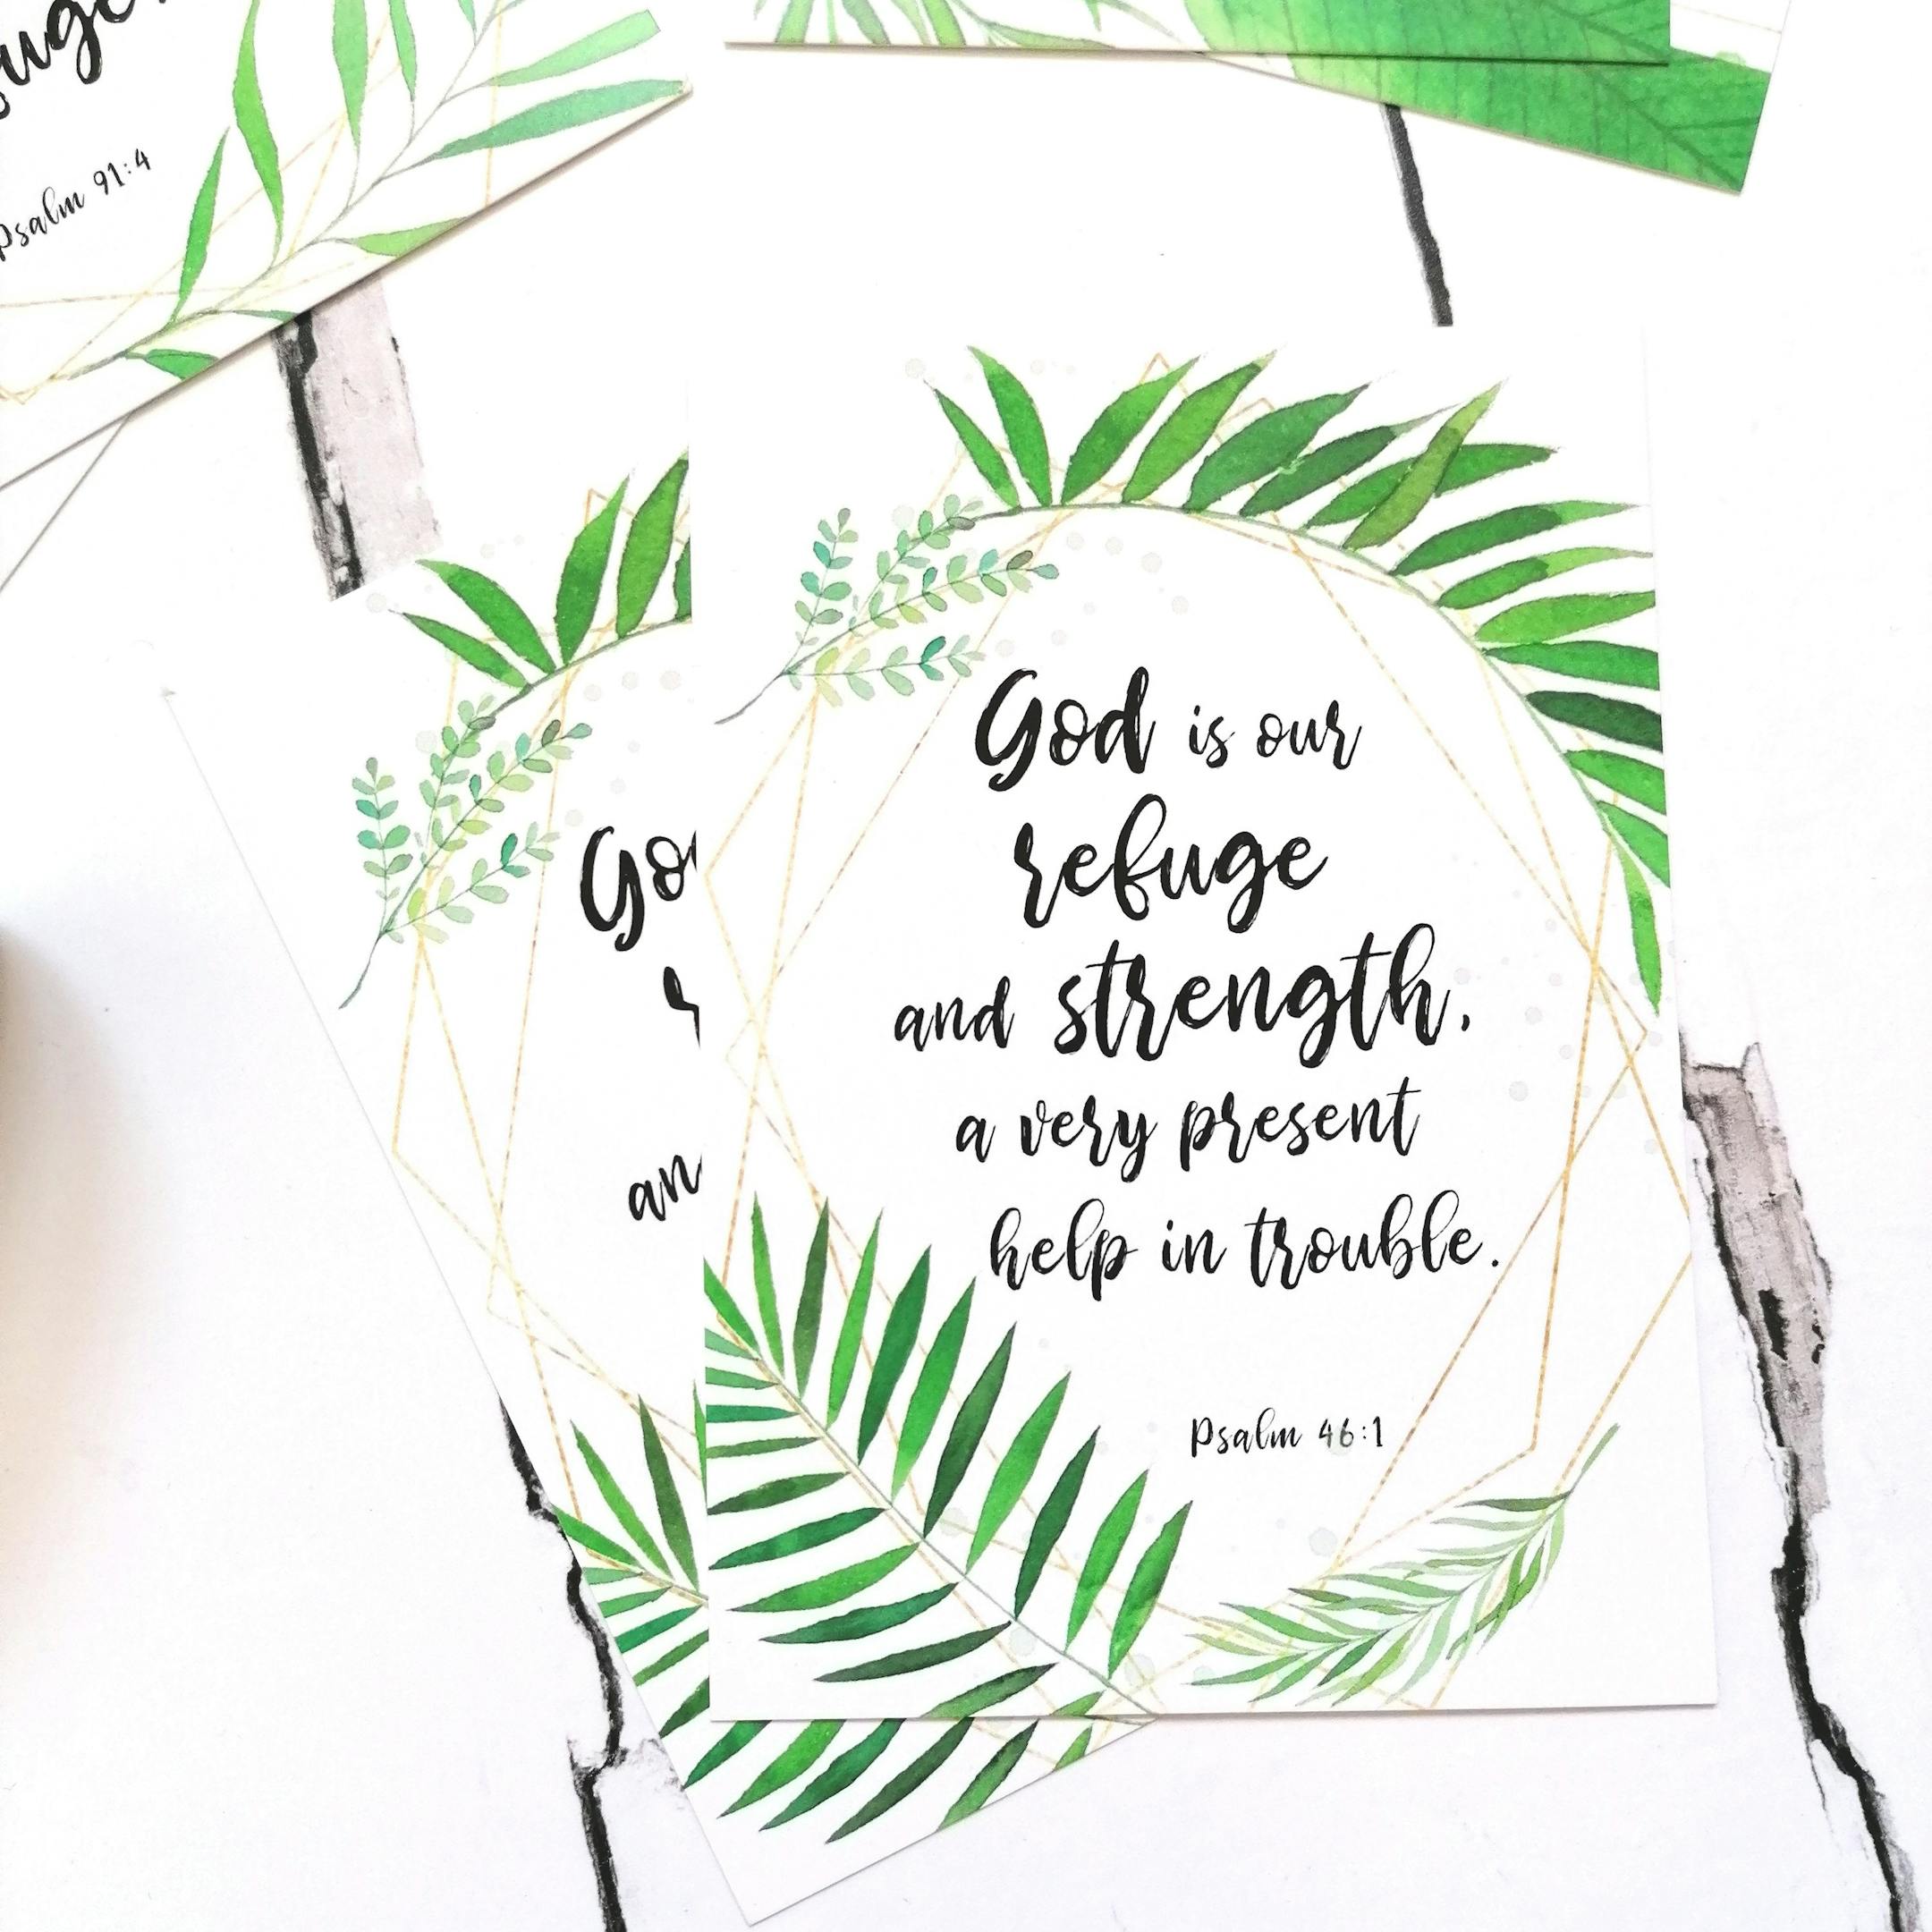 Psalm 91:4
God is our
refuge
and strength,
a very present
help in trouble.
Psalm 46:1